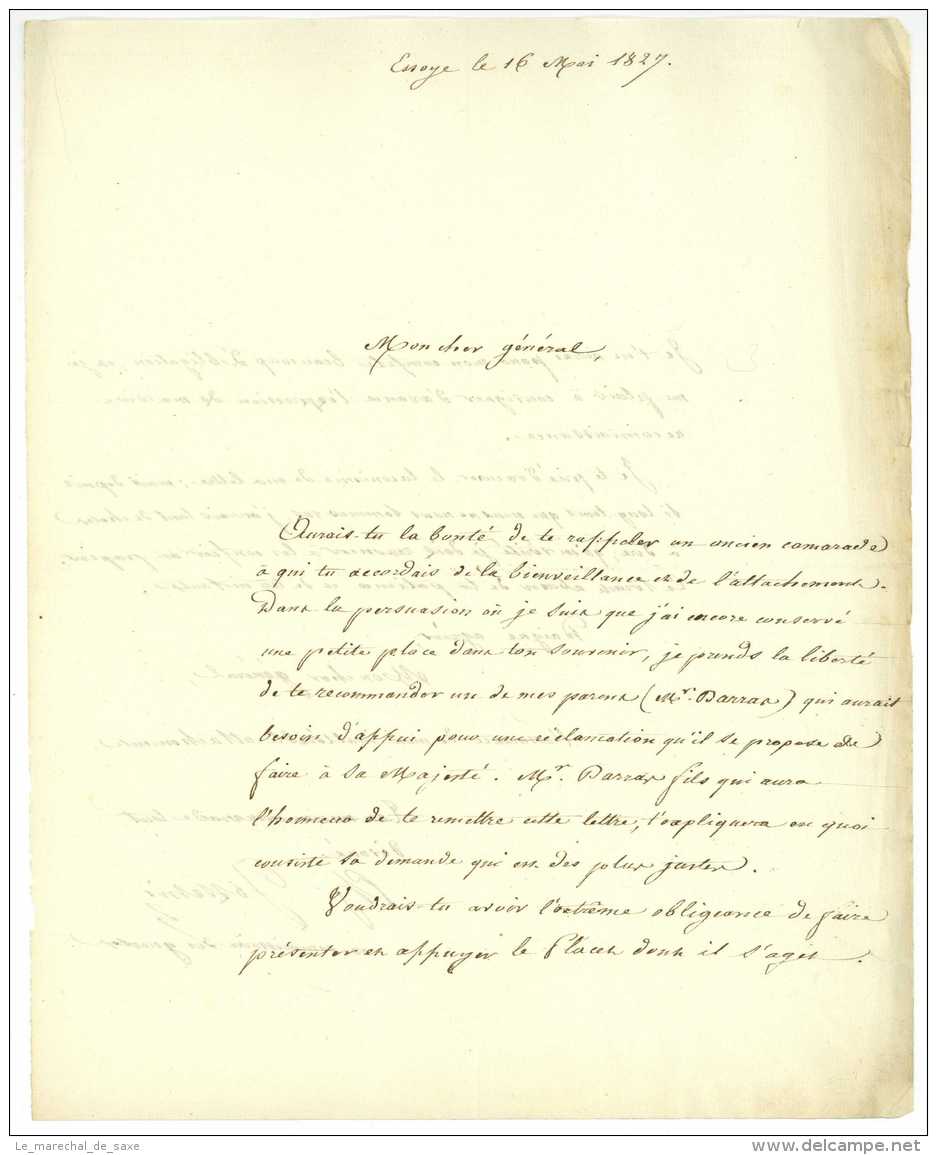 Essoye le 16 Mai 1827.
Mon cher général,
Aurais-tu la bonté de te rappeler un ancien camarade
à qui tu accordais de la bienveillance et de l'attachement.
Dans la persuasion où je suis que j'ai encore conservé
une petite place dans ton souvenir, je prends la liberté
de te recommander un de mes parens (Mr. Darras) qui aurait
besoin d'appui pour une réclamation qu'il se propose de
faire à Sa Majesté. Mr. Darras fils qui aura
l'honneur de te remettre cette lettre, t'expliquera en quoi
consiste sa demande qui est des plus justes.
Voudrais-tu avoir l'extrême obligeance de faire
présenter et appuyer le Placet dont il s'agit.
Le_marechal_de_saxe
www.delcampe.net